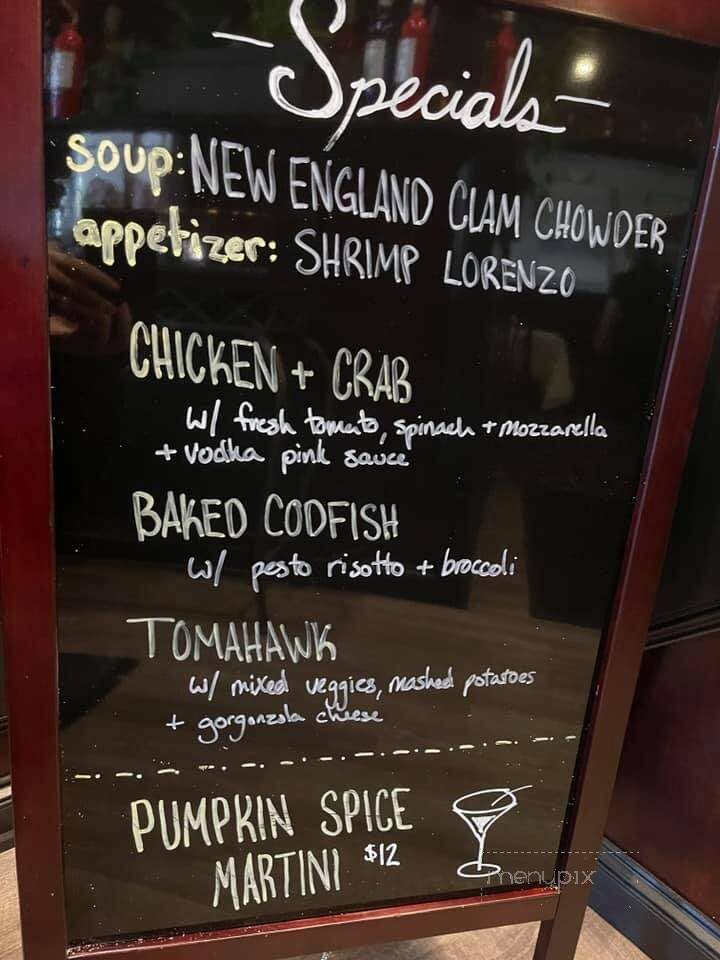 -Specials-
soup: NEW ENGLAND CLAM CHOWDER
appetizer: SHRIMP LORENZO
CHICKEN + CRAB
w/ fresh tomato, spinach + mozzarella
+ vodka pink sauce
BAKED CODFISH
w/ pesto risotto + broccoli
TOMAHAWK
w/ mixed veggies, mashed potatoes
+ gorgonzola cheese
PUMPKIN SPICE
MARTINI $12
menupix